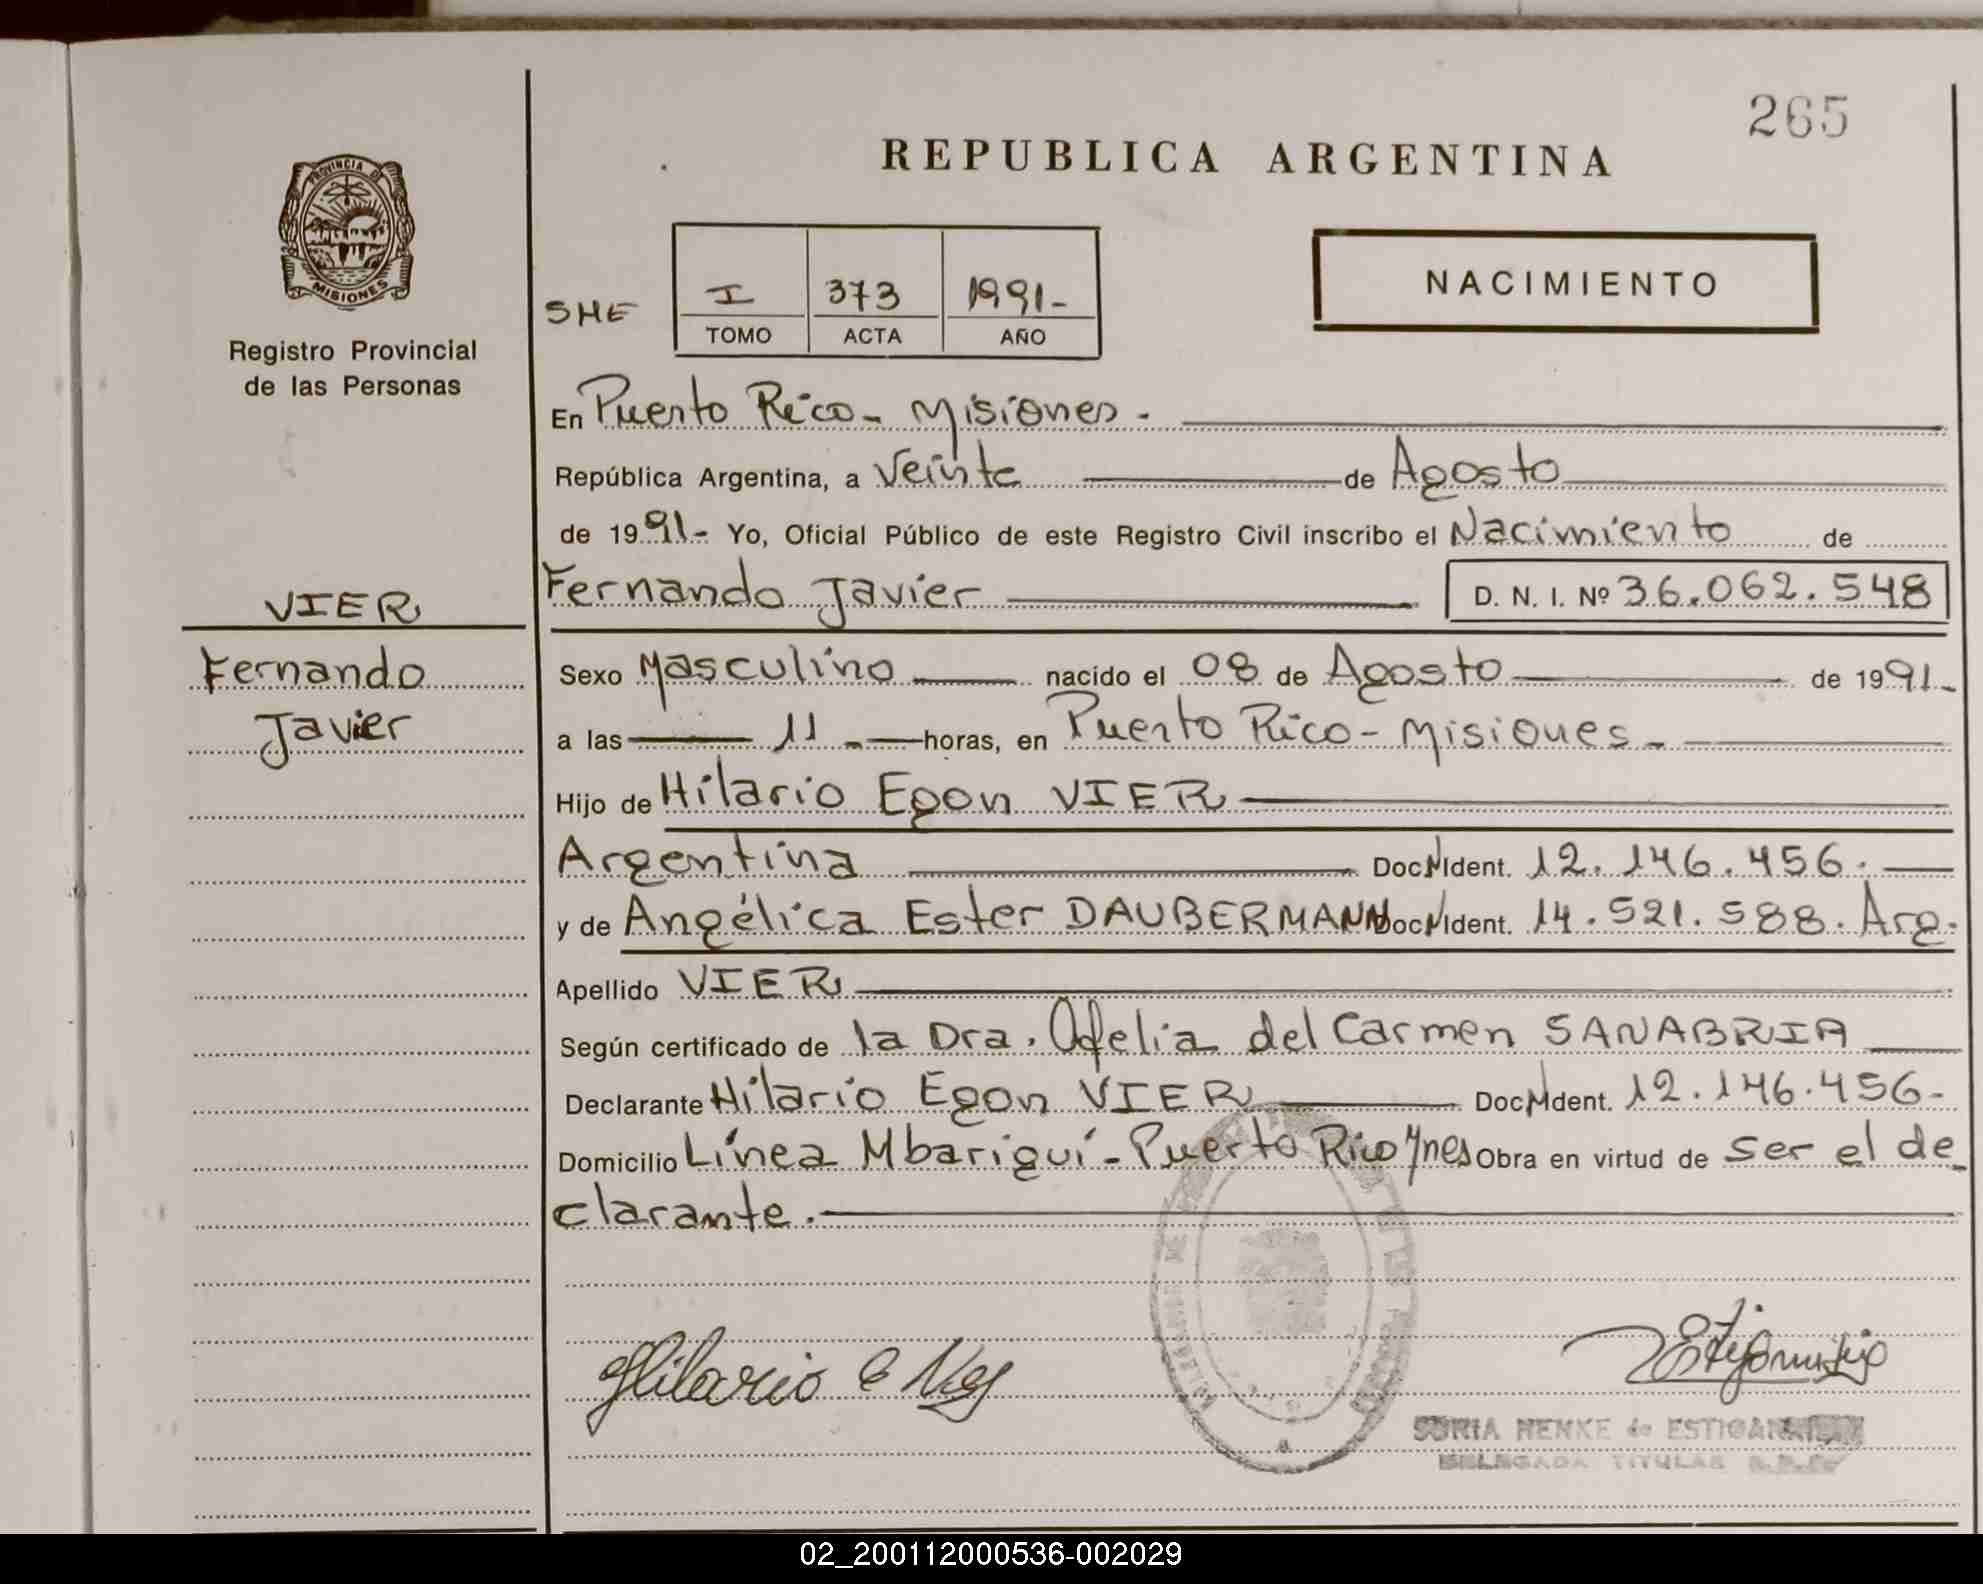 265
REPUBLICA ARGENTINA
PROVINCIA DE
MISIONES
Registro Provincial
de las Personas
SHE
I 373 1991-
TOMO ACTA AÑO
NACIMIENTO
En Puerto Rico - Misiones.
República Argentina, a Veinte de Agosto
de 1991- Yo, Oficial Público de este Registro Civil inscribo el Nacimiento de
Fernando Javier D. N. I. Nº 36.062.548
VIER
Fernando
Javier
Sexo Masculino nacido el 08 de Agosto de 1991-
a las 11.- horas, en Puerto Rico - Misiones.-
Hijo de Hilario Egon VIER
Argentina Doc N Ident. 12.146.456.
y de Angélica Ester DAUBERMANN Doc N Ident. 14.521.588. Arg.
Apellido VIER
Según certificado de la Dra. Ofelia del Carmen SANABRIA
Declarante Hilario Egon VIER Doc N Ident. 12.146.456-
Domicilio Línea Mbariguí - Puerto Rico Mnes Obra en virtud de ser el de
clarante.
Hilario E
SONIA MENKE de
DELEGADA TITULAR
02_200112000536-002029